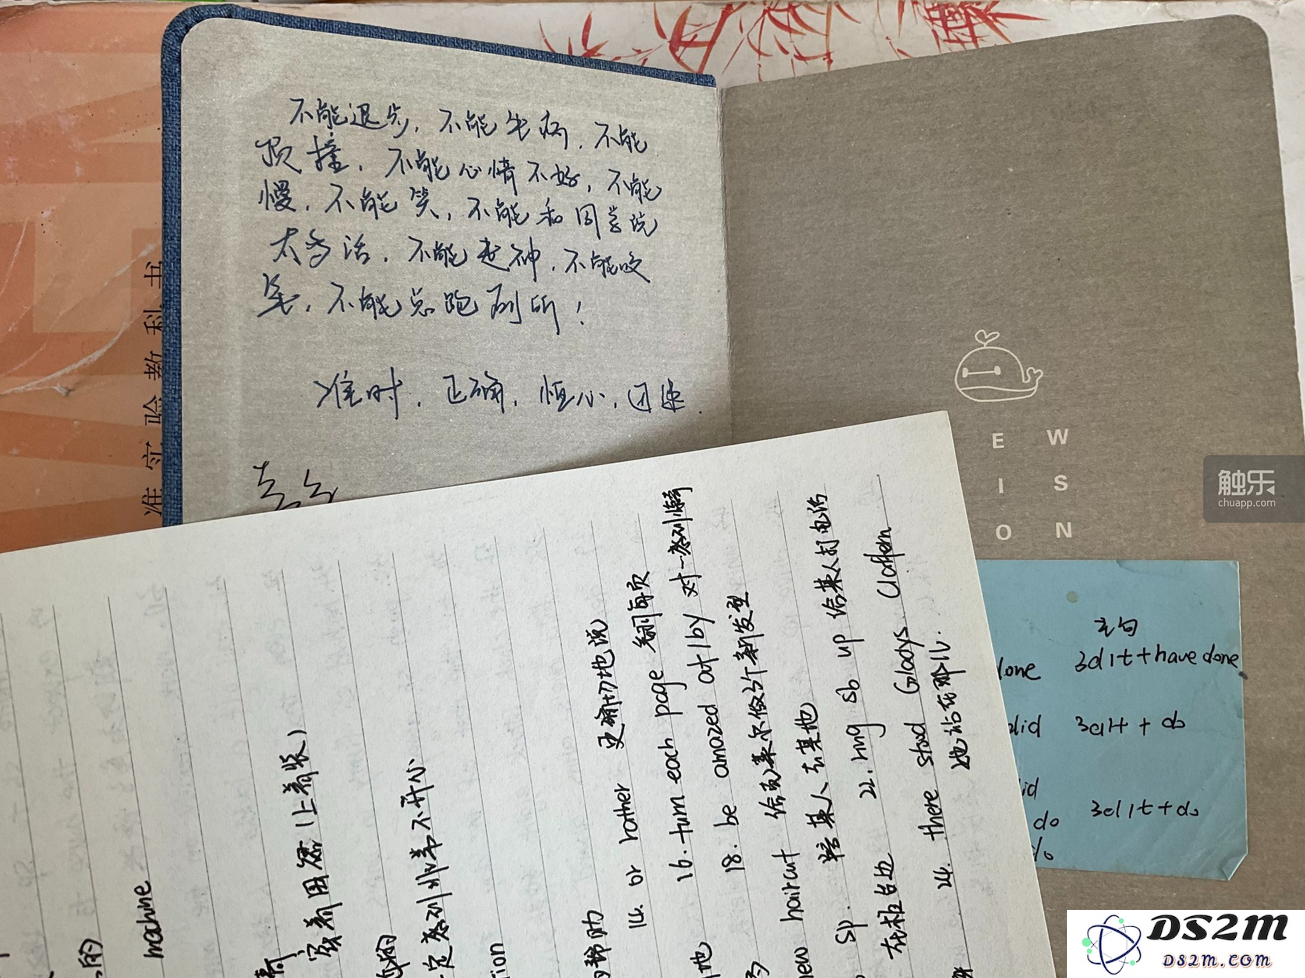 不能退步，不能生病，不能
顶撞，不能心情不好，不能
慢，不能笑，不能和同学说
太多话，不能走神，不能吃
不能总跑厕所！
准时，正确，恒心，迅速．
准实验教科书
E W
I S
O N
触乐
chuapp.com
主句
done 3d1t+have done
did 3d1t + do
did
do 3d1t+do
machine
实着用意（上着装）
一定感到非常不开心
的帮助
14. or rather 更确切地说
16. turn each page 翻到每页
18. be amazed at/by 对…感到惊
new haircut 给克莱尔做个新发型
sp. 陪某人去某地
22. ring sb up 给某人打电话
24. there stood Gladys Claffern
她站在那儿．
DS2m
DS2m.com